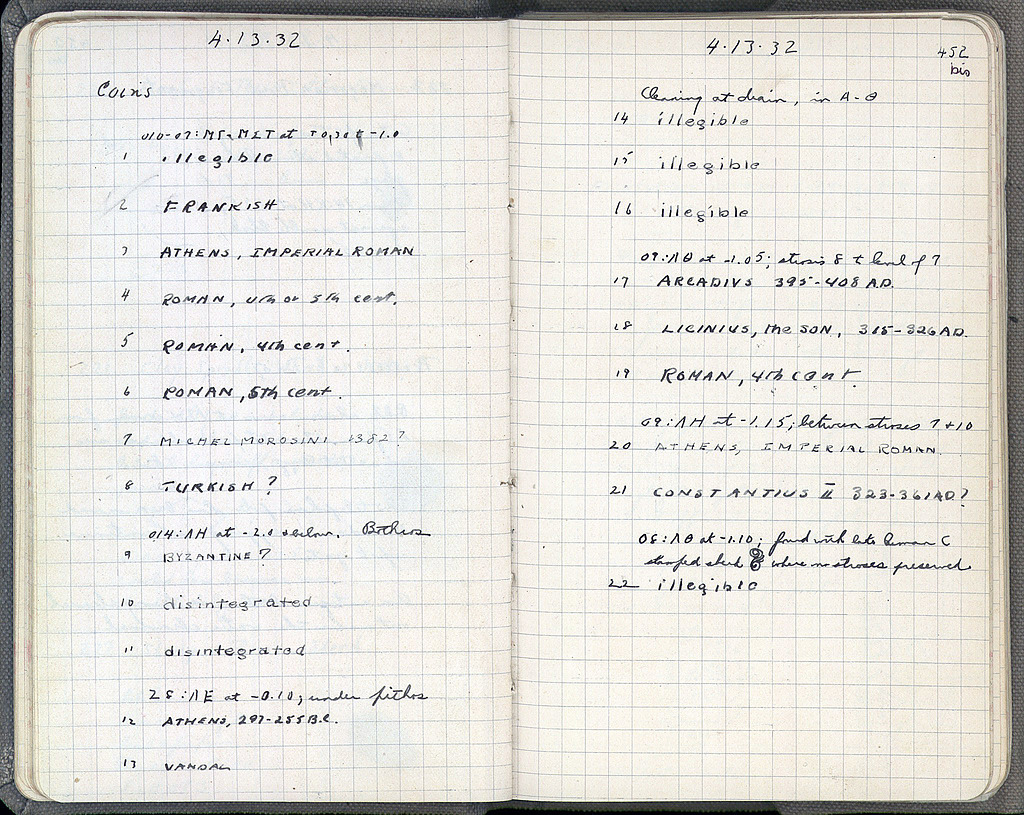 4·13·32
Coins
010-07: at -1.0
1 illegible
2 FRANKISH
3 ATHENS, IMPERIAL ROMAN
4 ROMAN, 4th or 5th cent.
5 ROMAN, 4th cent.
6 ROMAN, 5th cent.
7 MICHEL MOROSINI, 1382?
8 TURKISH?
014:ΛH at -2.0 & below. Bothros
9 BYZANTINE?
10 disintegrated
11 disintegrated
28:ΛE at -0.10; under pithos
12 ATHENS, 297-255 B.C.
13 VANDAL
4·13·32
452
bis
Cleaning at drain, in A-Θ
14 illegible
15 illegible
16 illegible
09:ΛΘ at -1.05; strosis 8 + level of 7
17 ARCADIVS 395-408 AD.
18 LICINIUS, the SON, 315-326 AD.
19 ROMAN, 4th cent.
09:ΛH at -1.15; between stroses 7 + 10
20 ATHENS, IMPERIAL ROMAN.
21 CONSTANTIUS II 323-361 AD?
08:ΛΘ at -1.10; found with late Roman C
stamped sherd where no stroses preserved
22 illegible